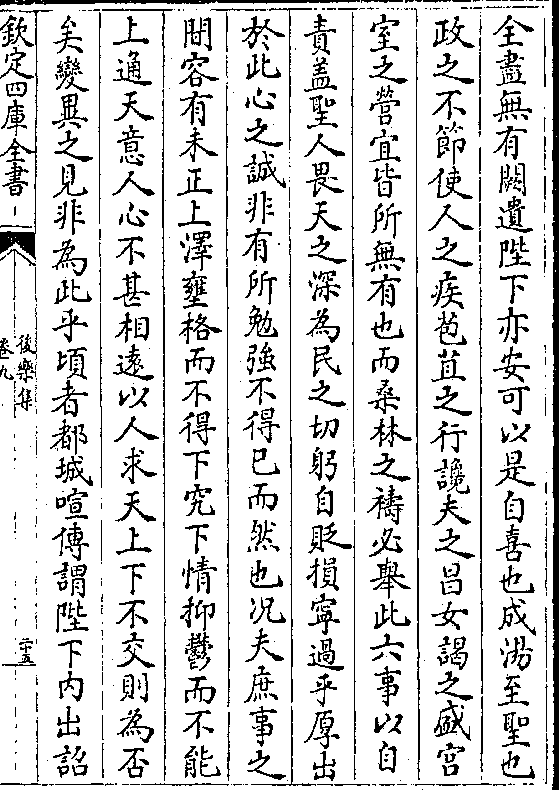 全盡無有闕遺陛下亦安可以是自喜也成湯至聖也
政之不節使人之疾苞苴之行讒夫之昌女謁之盛宫
室之營宜皆所無有也而桑林之禱必舉此六事以自
責盖聖人畏天之深為民之切躬自貶損寧過乎厚出
於此心之誠非有所勉強不得已而然也况夫庶事之
間容有未正上澤壅格而不得下究下情抑鬱而不能
上通天意人心不甚相遠以人求天上下不交則為否
矣變異之見非為此乎頃者都城喧傳謂陛下内出詔
欽定四庫全書
後樂集
卷九
二十五